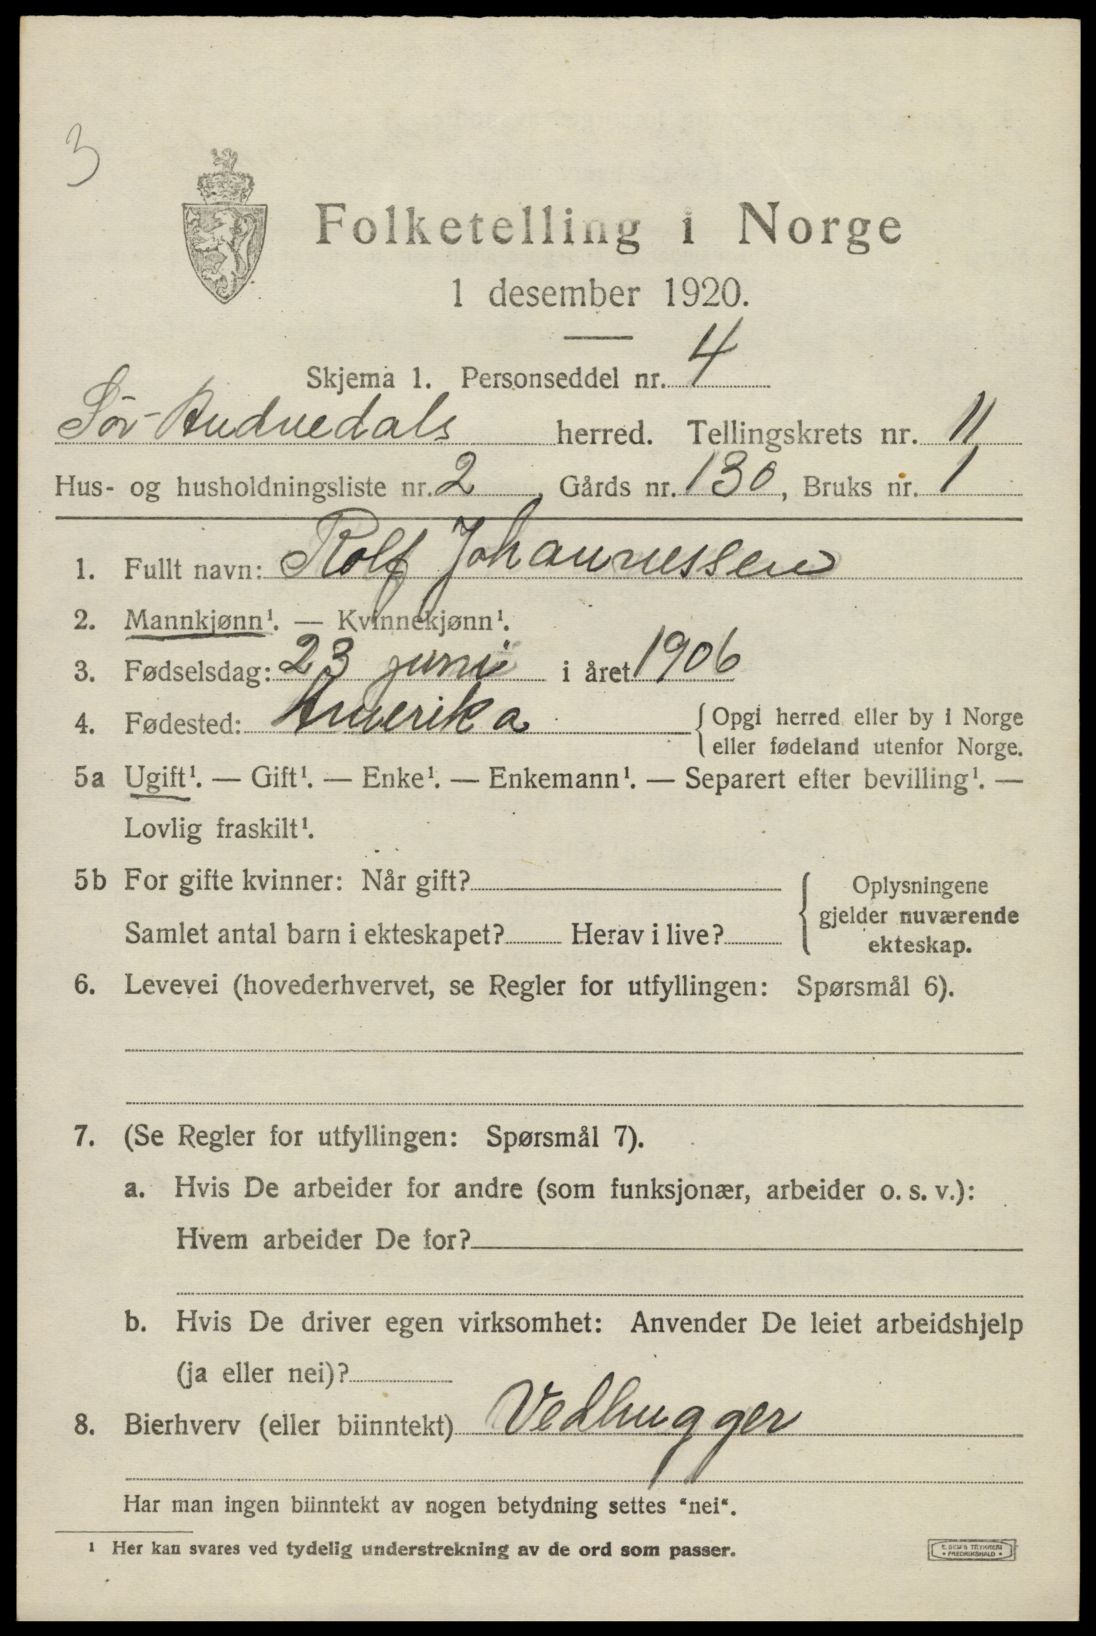 3
Folketelling i Norge
1 desember 1920.
Skjema 1. Personseddel nr. 4
Sør-Audnedals herred. Tellingskrets nr. 11
Hus- og husholdningsliste nr. 2, Gårds nr. 130, Bruks nr. 1
1. Fullt navn: Rolf Johannessen
2. Mannkjønn¹. — Kvinnekjønn¹.
3. Fødselsdag: 23 juni i året 1906
4. Fødested: Amerika {Opgi herred eller by i Norge
eller fødeland utenfor Norge.
5a Ugift¹. — Gift¹. — Enke¹. — Enkemann¹. — Separert efter bevilling¹. —
Lovlig fraskilt¹.
5b For gifte kvinner: Når gift?
Samlet antal barn i ekteskapet? Herav i live?
{Oplysningene
gjelder nuværende
ekteskap.
6. Levevei (hovederhvervet, se Regler for utfyllingen: Spørsmål 6).
7. (Se Regler for utfyllingen: Spørsmål 7).
a. Hvis De arbeider for andre (som funksjonær, arbeider o. s. v.):
Hvem arbeider De for?
b. Hvis De driver egen virksomhet: Anvender De leiet arbeidshjelp
(ja eller nei)?
8. Bierhverv (eller biinntekt) Vedhugger
Har man ingen biinntekt av nogen betydning settes "nei".
¹ Her kan svares ved tydelig understrekning av de ord som passer.
FREDRIKSHALD